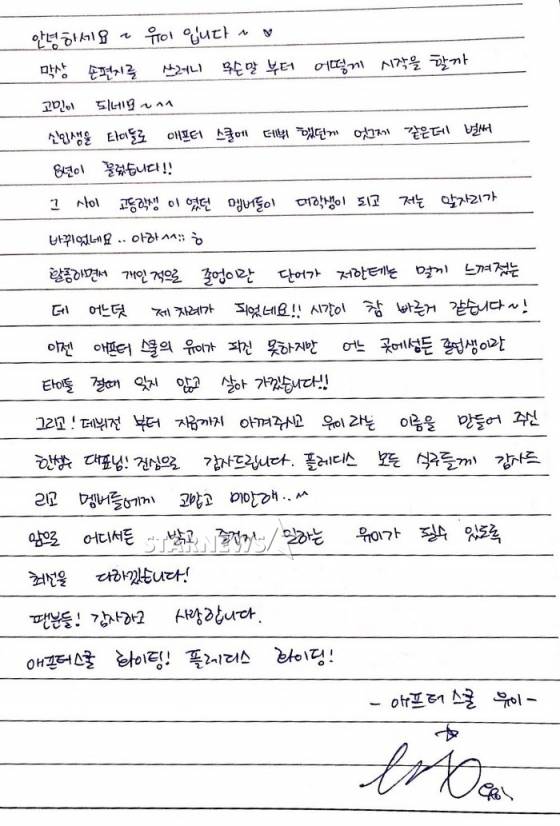 안녕하세요~ 유이 입니다~ ♥
막상 손편지를 쓰려니 무슨말 부터 어떻게 시작을 할까
고민이 되네요~^^
신인생을 타이틀로 애프터 스쿨에 데뷔 했던게 엊그제 같은데 벌써
8년이 흘렀습니다!!
그 사이 고등학생 이 였던 멤버들이 대학생이 되고 저는 앞자리가
바뀌었네요.. 아하^^;; ㅎ
활동하면서 개인적으로 졸업이란 단어가 저한테는 멀게 느껴졌는
데 어느덧 제 차례가 되었네요!! 시간이 참 빠른거 같습니다~!
이젠 애프터 스쿨의 유이가 되진 못하지만 어느 곳에성든 졸업생이란
타이틀 절때 잊지 않고 살아 가겠습니다!!
그리고! 데뷔전 부터 지금까지 아껴주시고 유이 라는 이름을 만들어 주신
한성수 대표님! 진심으로 감사드립니다. 플레디스 모든 식구들께 감사드
리고 멤버들에게 고맙고 미안해..^
앞으로 어디서든 밝고 긍정적 일하는 유이가 될수 있도록
최선을 다하겠습니다!
팬분들! 감사하고 사랑합니다.
애프터스쿨 화이팅! 플레디스 화이팅!
- 애프터 스쿨 유이 -
STARNEWS